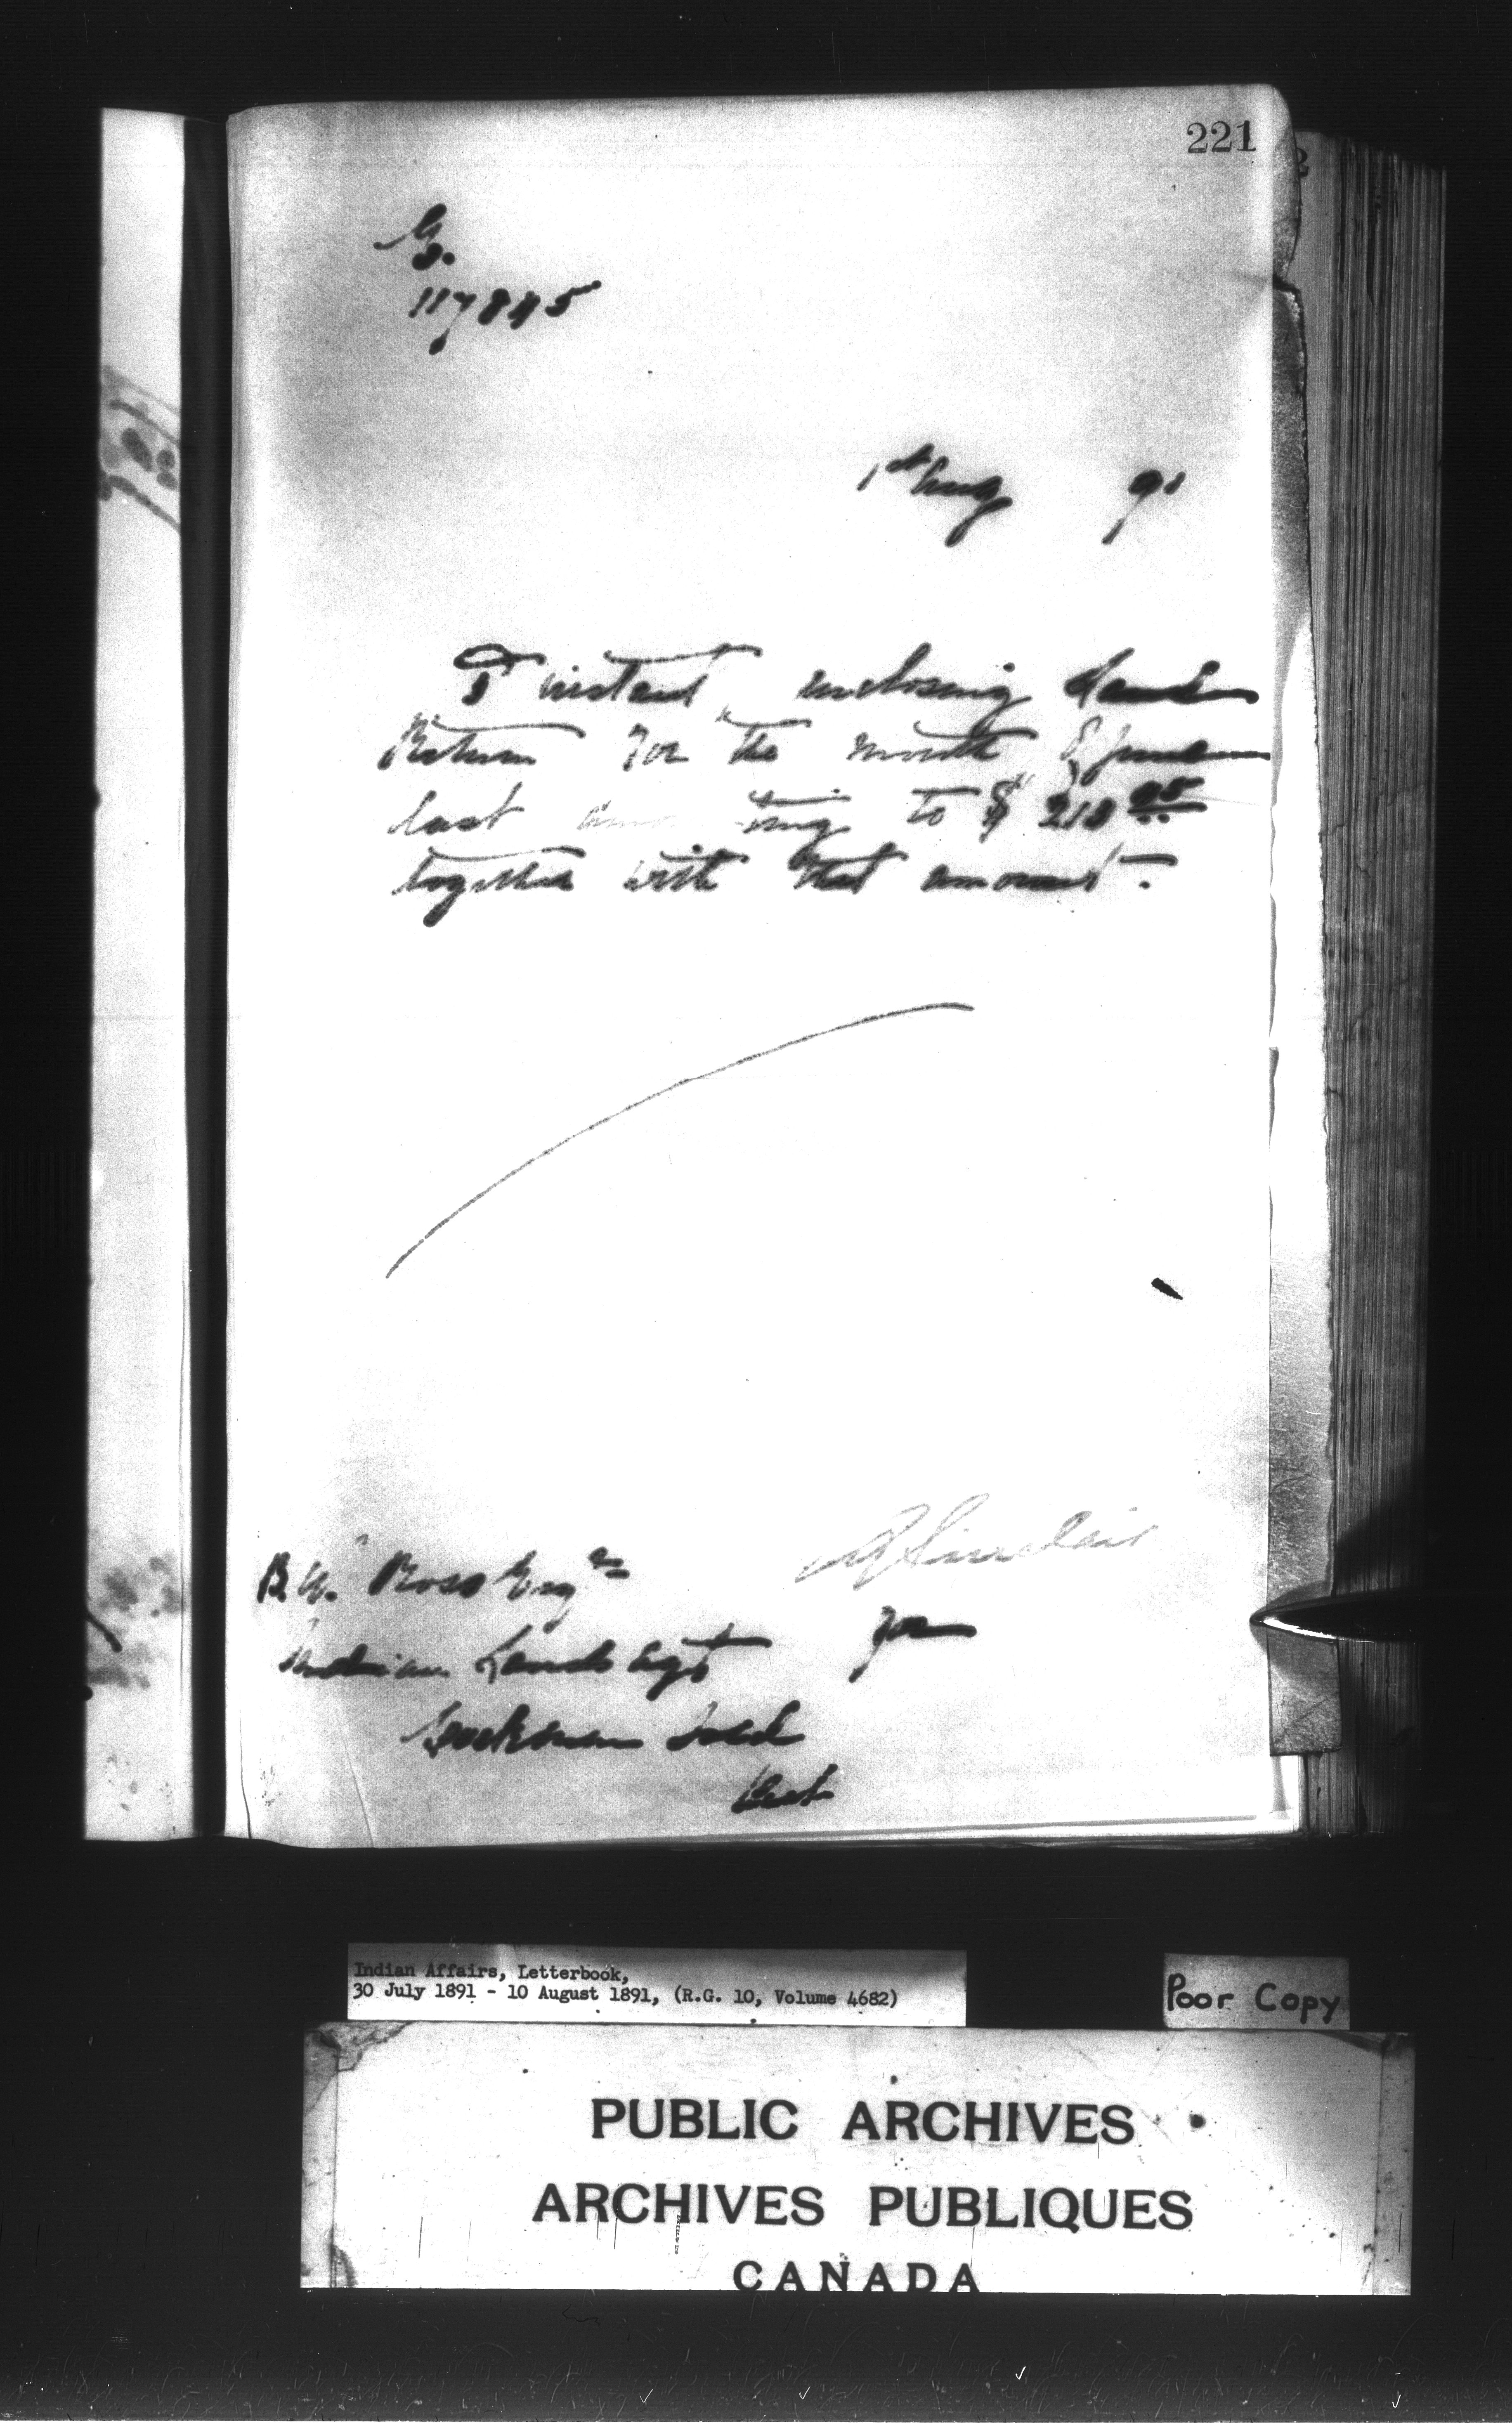 221
117845
1st Aug 91
instant, enclosing Land
Return for the month of June
last amounting to $ 218
together with that amount.
B.W. Ross Esqre
A Sinclair
Indian Land Agt
for
Cockburn Island
Ont
Indian Affairs, Letterbook,
30 July 1891 - 10 August 1891, (R.G. 10, Volume 4682)
Poor Copy
PUBLIC ARCHIVES
ARCHIVES PUBLIQUES
CANADA